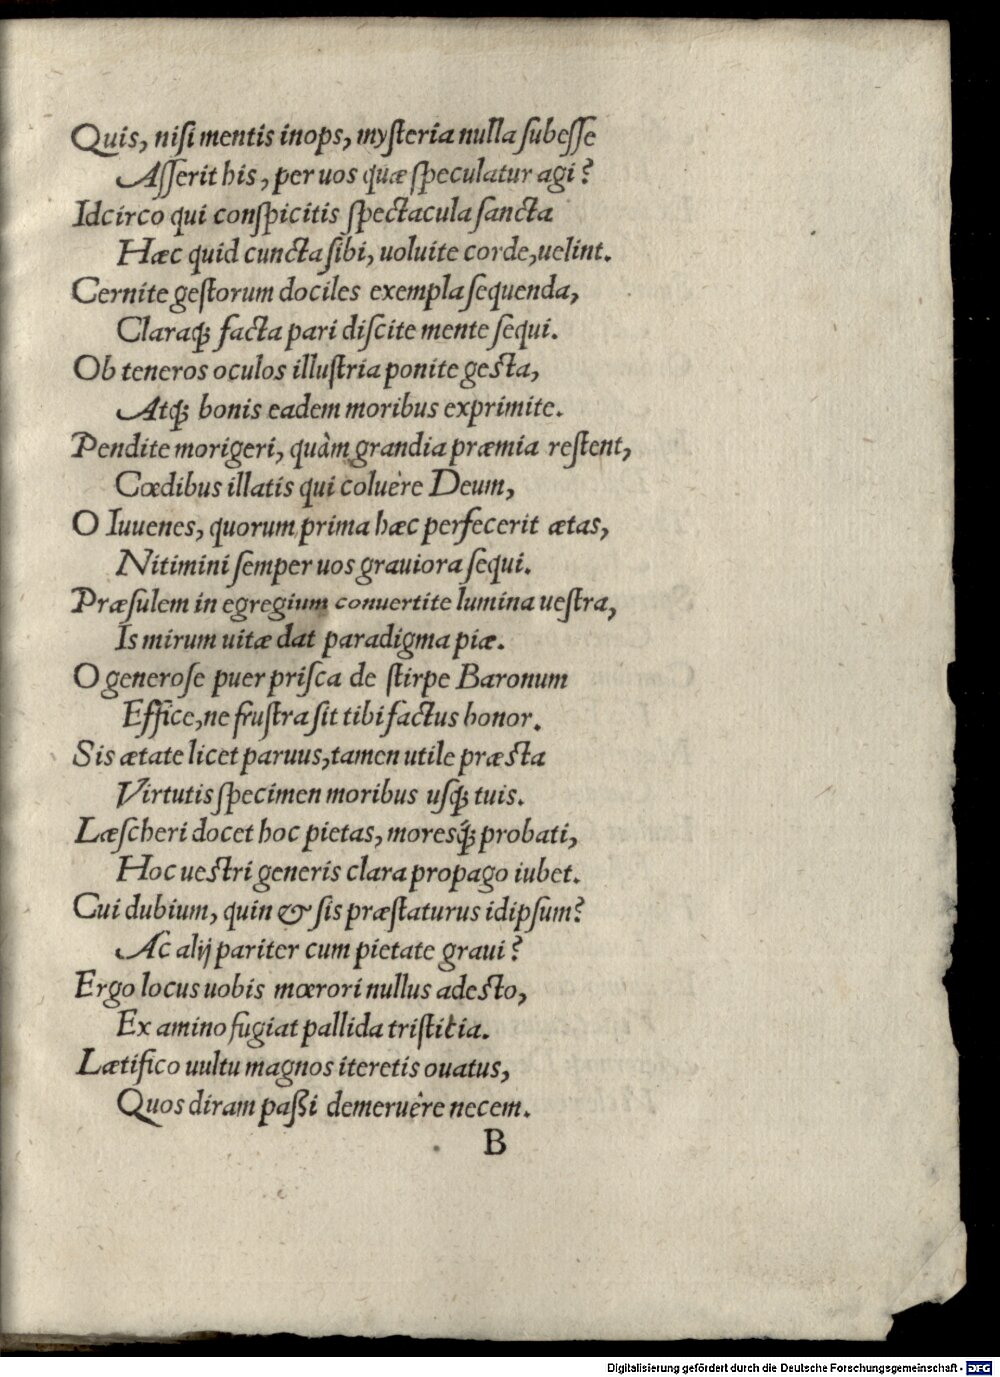 Quis, niſi mentis inops, myſteria nulla ſubeſſe
Aſſerit his, per uos quæ ſpeculatur agi?
Idcirco qui conſpicitis ſpectacula ſancta
Hæc quid cuncta ſibi, uoluite corde, uelint.
Cernite geſtorum dociles exempla ſequenda,
Claraq́; facta pari diſcite mente ſequi.
Ob teneros oculos illuſtria ponite geſta,
Atq́; bonis eadem moribus exprimite.
Pendite morigeri, quàm grandia præmia reſtent,
Cœdibus illatis qui coluêre Deum,
O Iuuenes, quorum prima hæc perfecerit ætas,
Nitimini ſemper uos grauiora ſequi.
Præſulem in egregium conuertite lumina ueſtra,
Is mirum uitæ dat paradigma piæ.
O generoſe puer priſca de ſtirpe Baronum
Effice, ne fruſtra ſit tibi factus honor.
Sis ætate licet paruus, tamen utile præſta
Virtutis ſpecimen moribus uſq́; tuis.
Læſcheri docet hoc pietas, moresq́; probati,
Hoc ueſtri generis clara propago iubet.
Cui dubium, quin & ſis præſtaturus idipſum?
Ac alij pariter cum pietate graui?
Ergo locus uobis mœrori nullus adeſto,
Ex amino fugiat pallida triſtitia.
Lætifico uultu magnos iteretis ouatus,
Quos diram paſſi demeruêre necem.
B
Digitalisierung gefördert durch die Deutsche Forschungsgemeinschaft - DFG